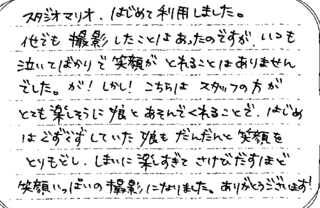 スタジオマリオ、はじめて利用しました。
他でも撮影したことはあったのですが、いつも
泣いてばかりで笑顔がとれることはありません
でした。が！しかし！こちらはスタッフの方が
とても楽しそうに娘とあそんでくれることで、はじめ
はぐずぐずしていた娘もだんだんと笑顔を
とりもどし、しまいに楽しすぎてさけびだすほど
笑顔いっぱいの撮影になりました。ありがとうございます！